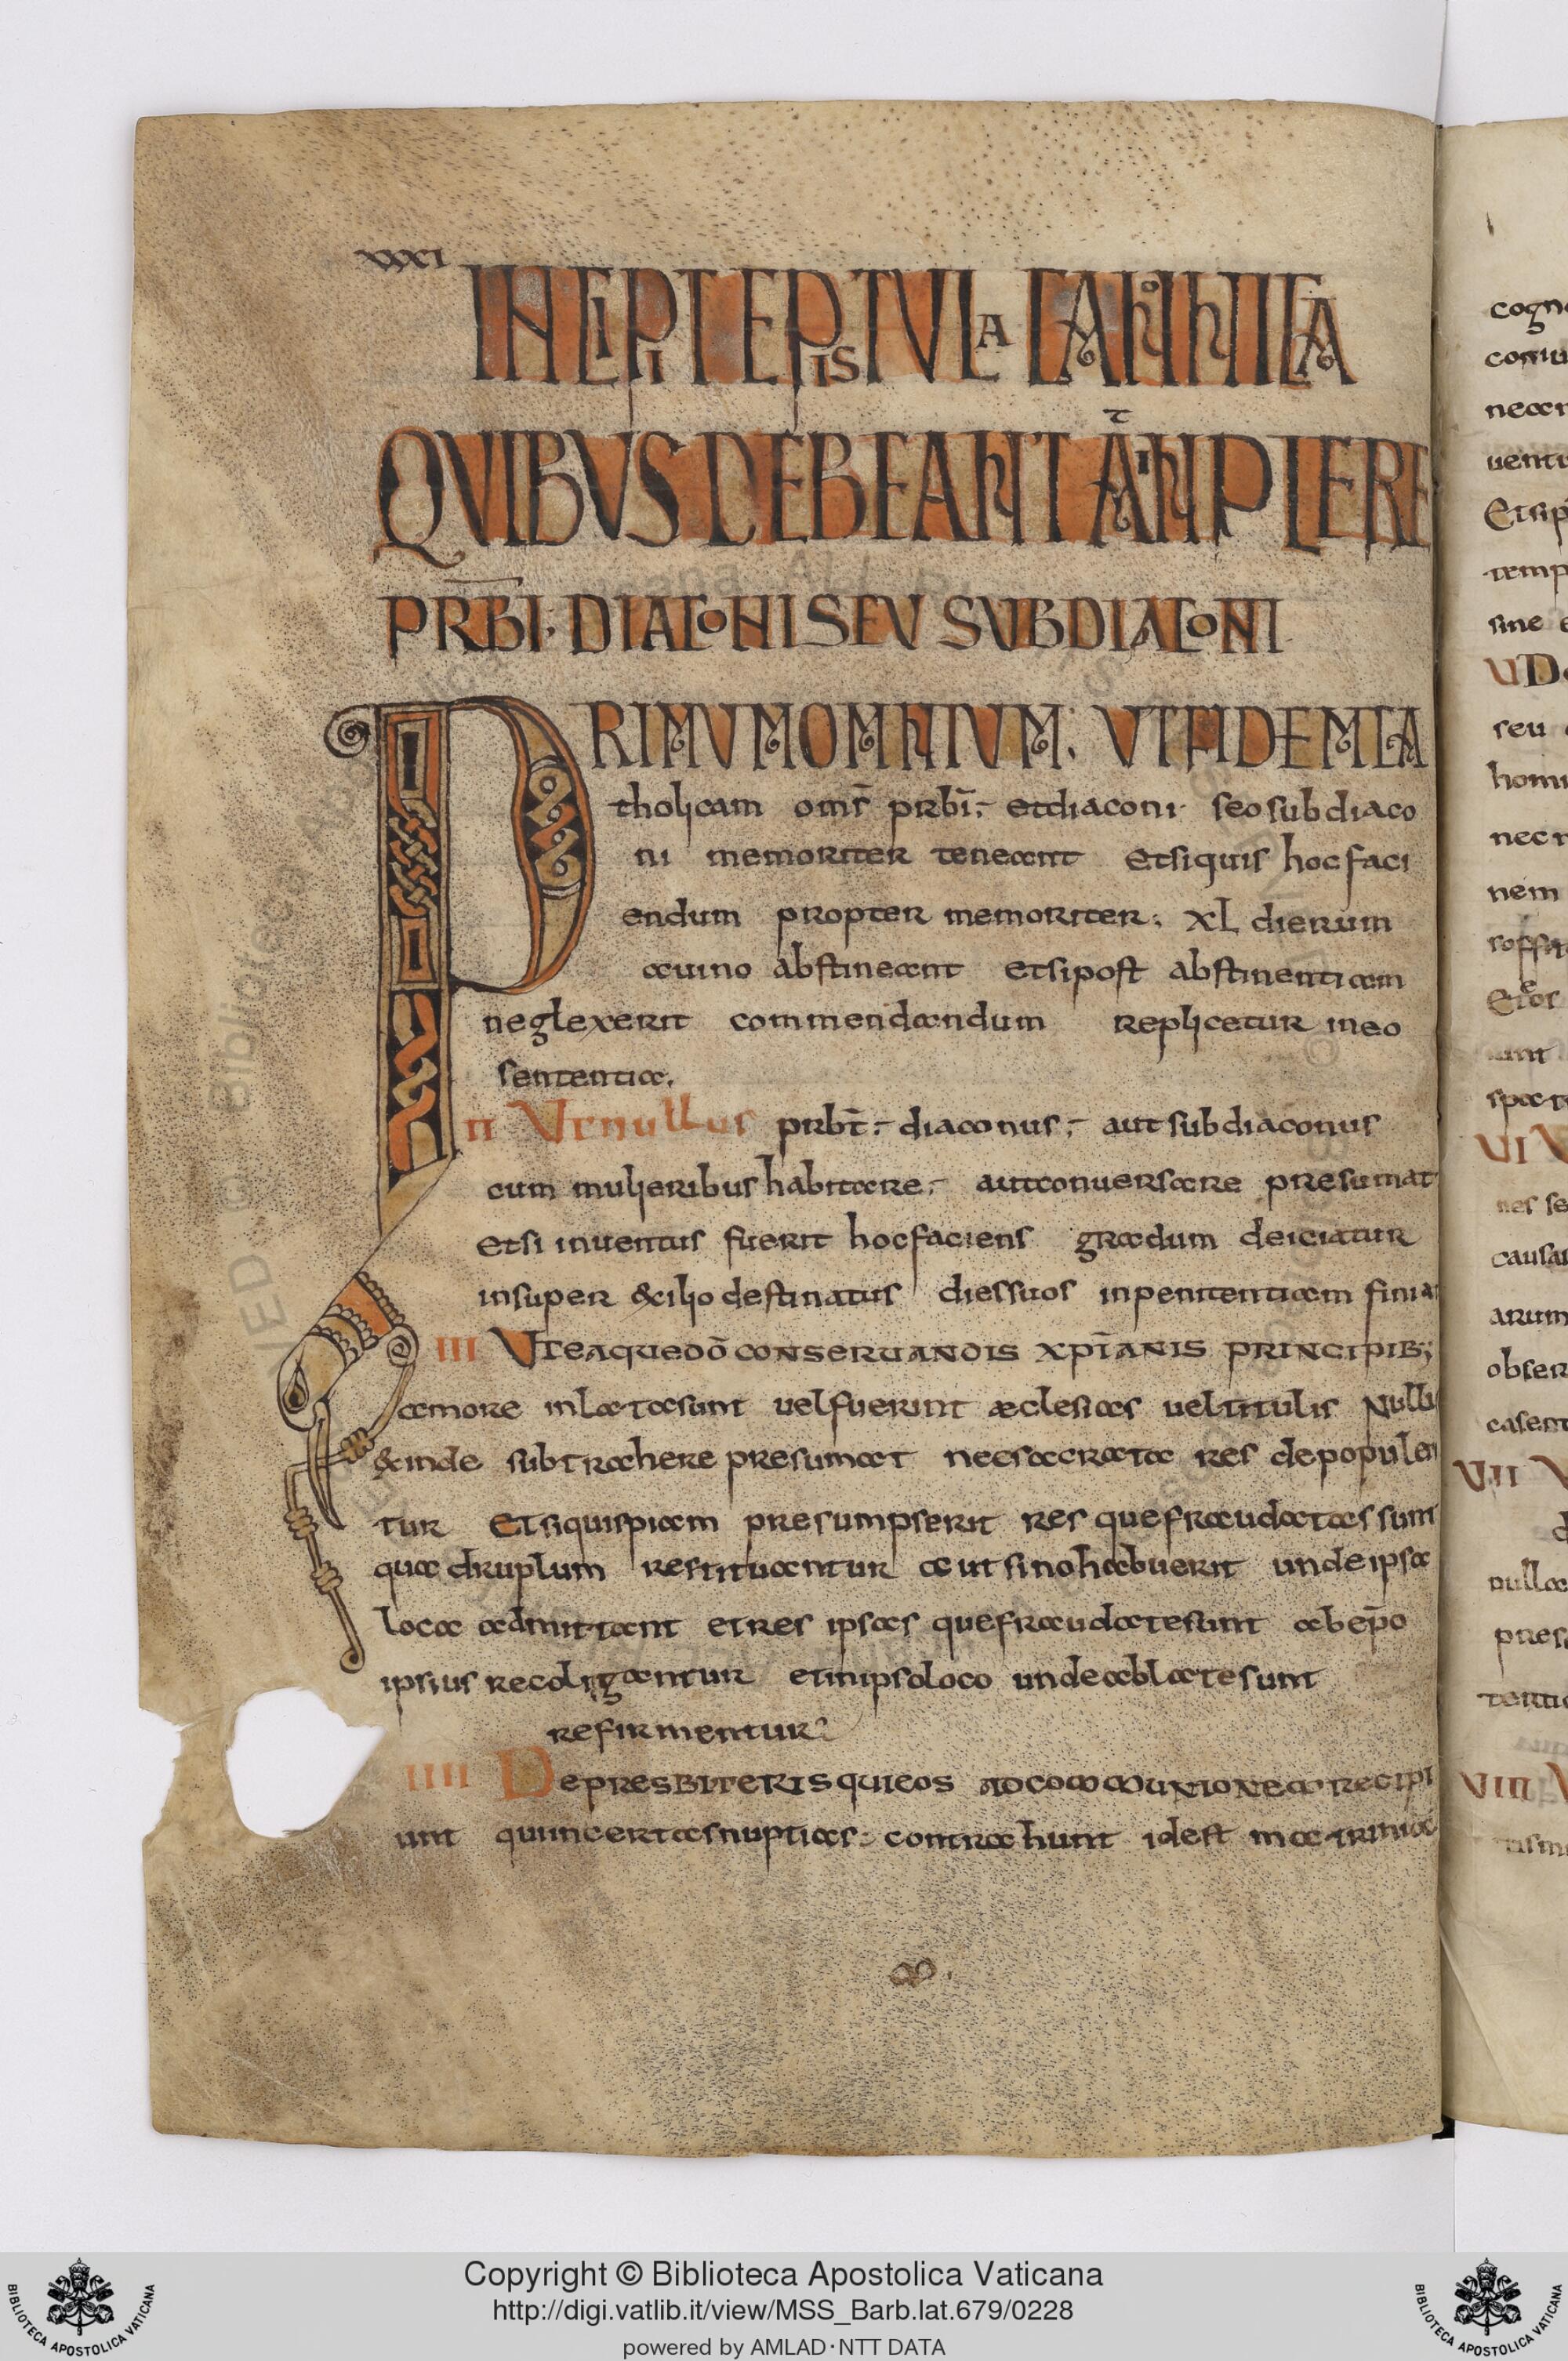 XXXI
INCIPIT EPISTVLA CANONICA
QVIBUS DEBEANT ĀINPLERE
PR̄BI· DIACONI SEU SUBDIACONI
PRIMUM OMNIUM· UT FIDEM CA
tholicam om̄s prb̄i, et diaconi seo subdiaco
ni memoriter teneant Et si quis hoc faci
endum propter memoriter; XL dierum
a uino abstineant et si post abstinentiam
neglexerit commendandum replicetur in eo
sententia.
II Ut nullus prb̄t, diaconus, aut subdiaconus
cum mulieribus habitare, aut conuersare presumat
Et si inuentus fuerit hoc faciens gradum deiciatur
insuper &cilio destinatus dies suos in penitentiam finiat
III UT ea que dō conseruandis xp̄ianis principib;
amore inlata sunt uel fuerint æclesias uel titulis Nullus
&inde subtrahere presumat nec sacrata res depopulen
tur Et si quispiam presumpserit res que fraudatas sunt
quadruplum restituantur aut si no habuerit unde ipsa
loca admittant et res ipsas que fraudate sunt ab ep̄o
ipsius recoligantur et in ipso loco unde ablate sunt
refirmentur
IIII De presbiteris qui eos ad communionem recipi
unt qui incertas nuptias contrahunt id est matrimonia